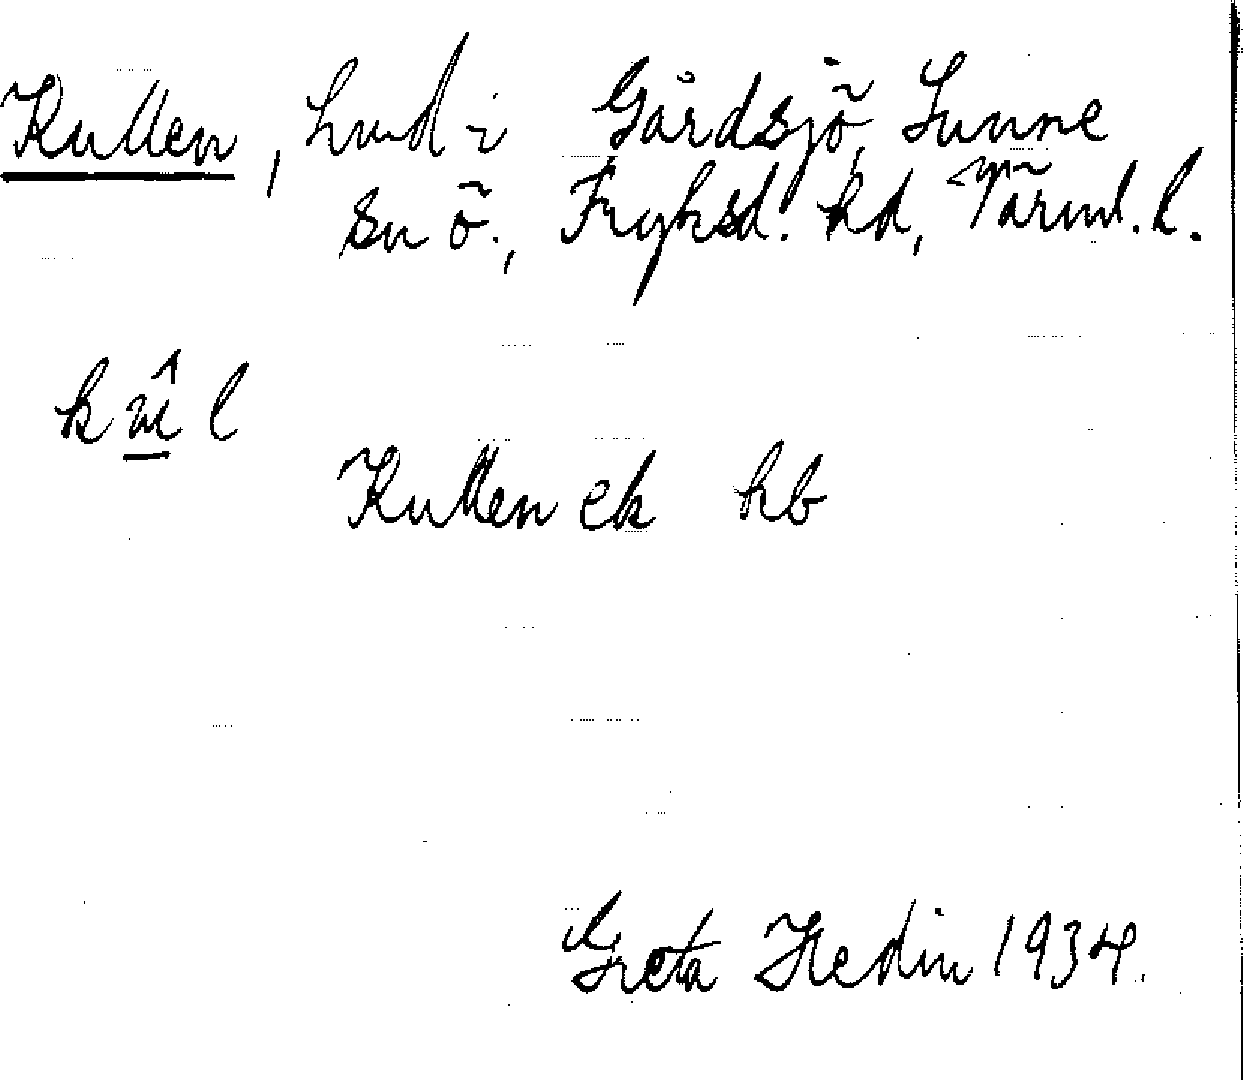 Kullen, hmd i Gårdsjö, Sunne
sn ö., Fryksd. hd, Värml. l.
Kullen ek hb
Greta Hedin 1934.